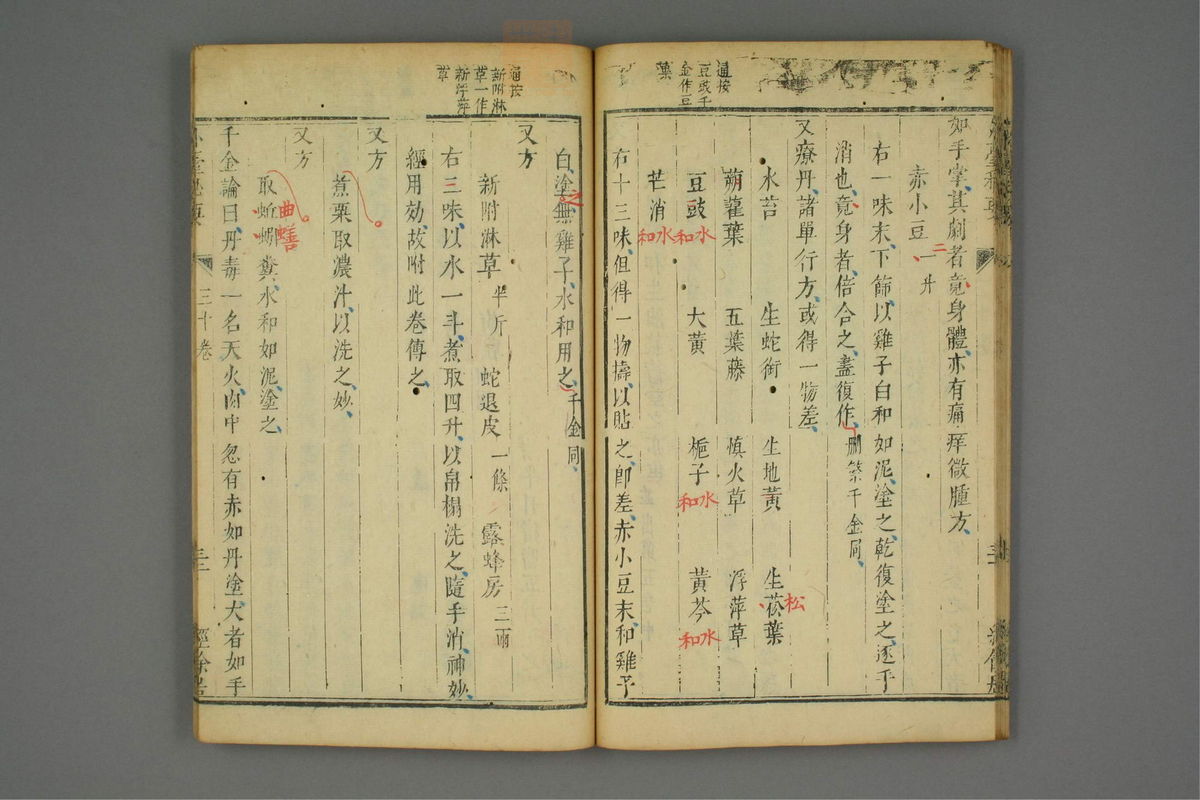 通按
豆豉千
金作豆
葉
如手掌其劇者竟身體亦有痛痒微腫方
赤小豆一升
二
右一味末下篩以雞子白和如泥塗之乾復塗之逐手
消也竟身者倍合之盡復作刪繁千金同
又療丹諸單行方或得一物差
水苔 生蛇銜 生地黃 生菘葉
松
蒴藋葉 五葉藤 慎火草 浮萍草
豆豉 大黃 梔子 黃芩
和水 和水 和水
芒消
和水
右十三味但得一物擣以貼之即差赤小豆末和雞子
通按
新附淋
草一作
新浮萍
草
白塗無雞子水和用之千金同
之
又方
新附淋草半斤 蛇退皮一條 露蜂房三兩
右三味以水一斗煮取四升以帛搨洗之隨手消神妙
經用効故附此卷傳之
又方
煮粟取濃汁以洗之妙
又方
取蚯蚓糞水和如泥塗之
曲蟮
千金論曰丹毒一名天火肉中忽有赤如丹塗大者如手
三十卷
經餘居